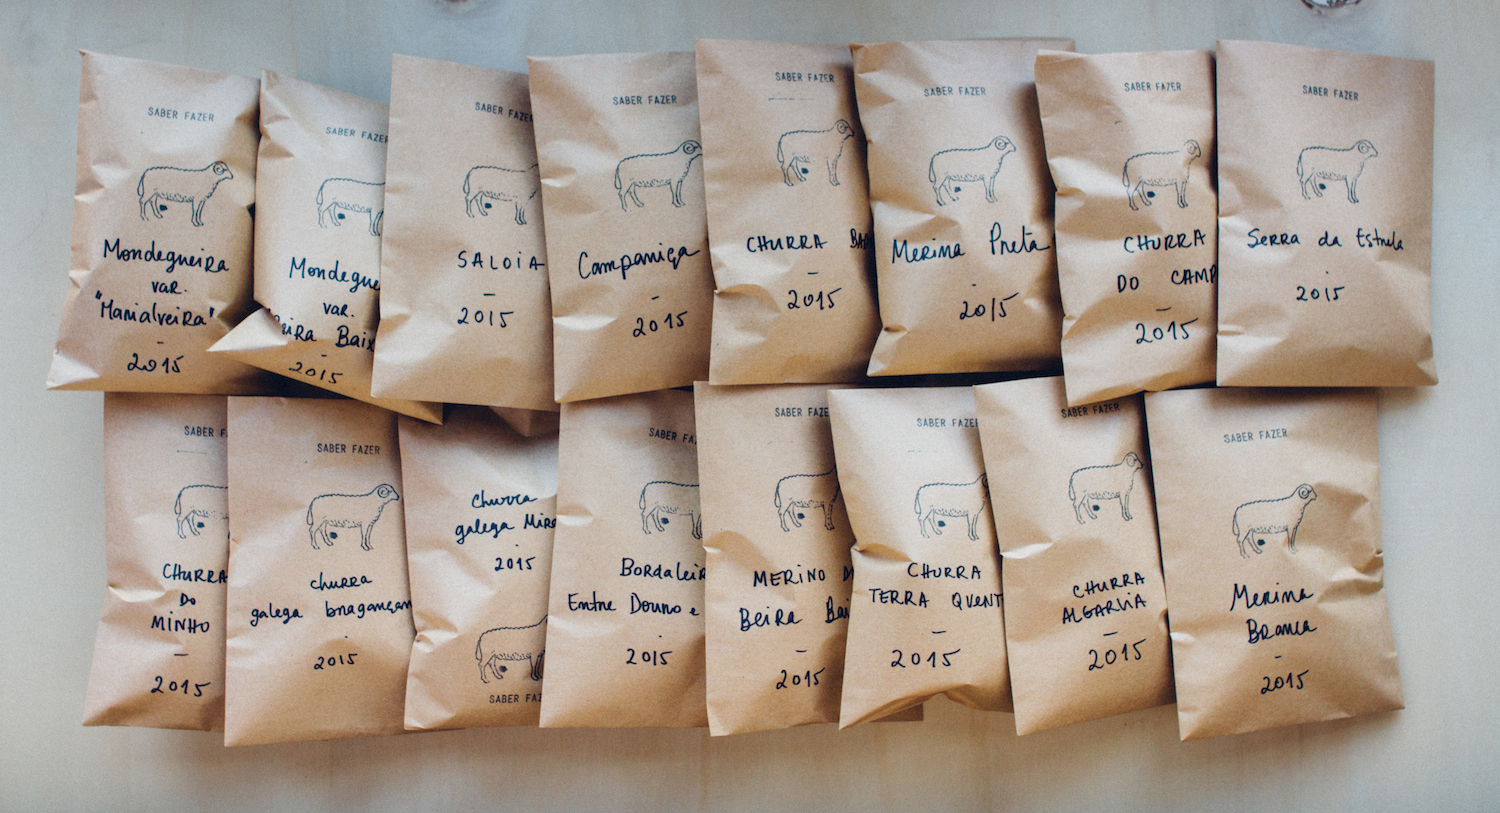 SABER FAZER
Mondegueira
var.
"Marialveira"
-
2015
SABER FAZER
Mondegue
var.
eira Baix
-
2015
SABER FAZE
SALOIA
-
2015
SABER FAZER
Campaniça
-
2015
SABER FAZER
CHURRA BA
-
2015
SABER FAZER
Merina Preta
-
2015
SABER FAZER
CHURRA
DO CAMP
-
2015
SABER FAZER
Serra da Estrela
.
2015
SABER F
CHURRA
DO
MINHO
-
2015
SABER FAZER
churra
galega bragançan
.
2015
churra
galega Mira
.
2015
SABER FAZ
SABER FAZ
Bordaleir
Entre Douro e
.
2015
SABER FAZE
MERINO D
Beira Bai
-
2015
SABER FAZE
CHURRA
TERRA QUENT
-
2015
SABER FAZER
CHURRA
ALGARVIA
-
2015
SABER FAZER
Merina
Branca
-
2015